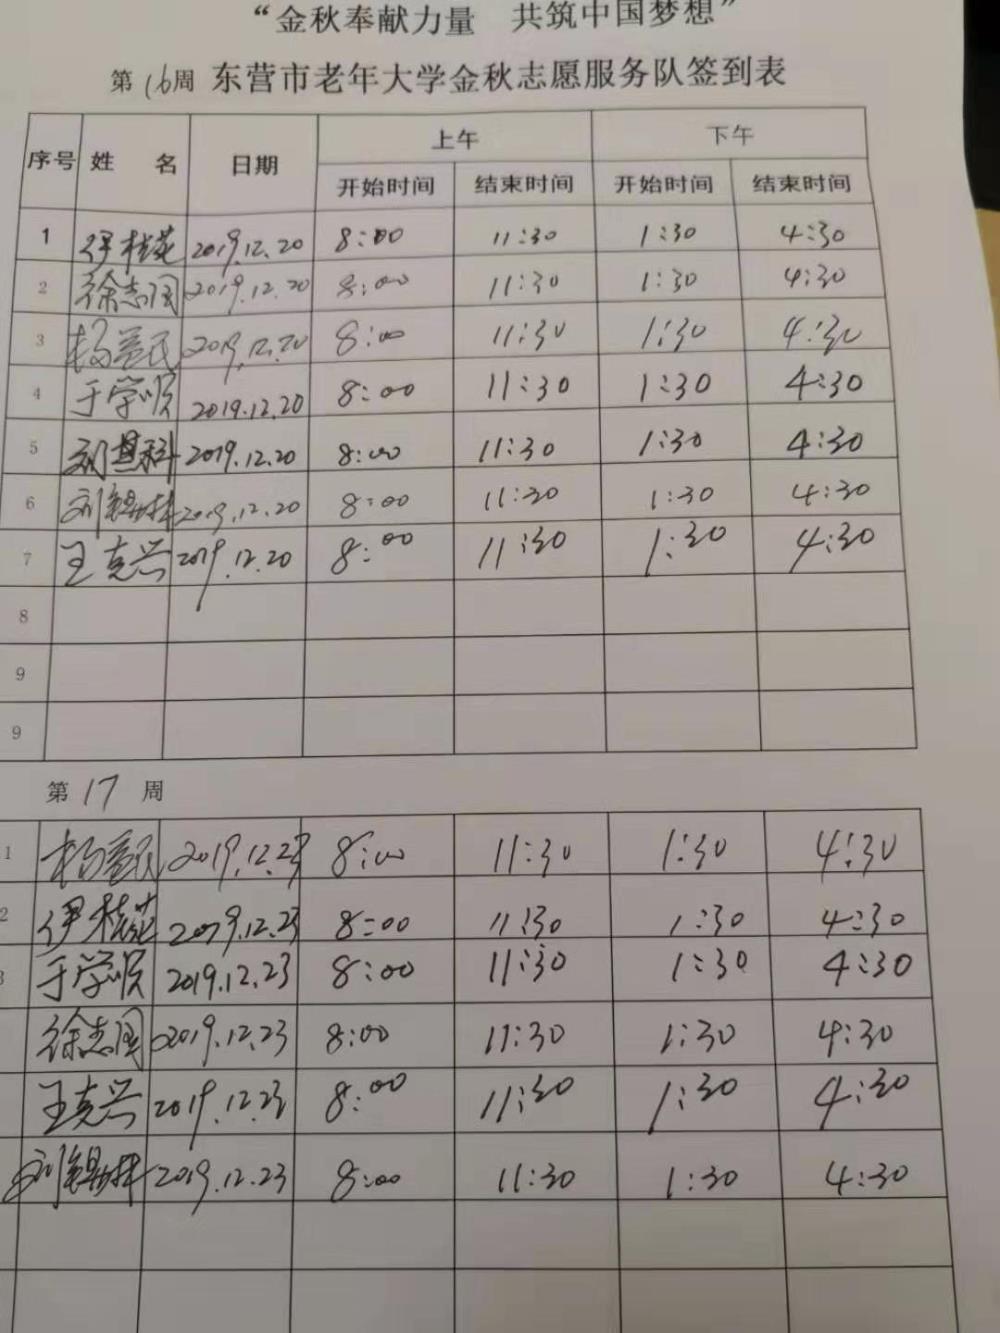 “金秋奉献力量 共筑中国梦想”
第16周 东营市老年大学金秋志愿服务队签到表
序号 姓 名 日期 上午 下午
开始时间 结束时间 开始时间 结束时间
1 伊桂花 2019.12.20 8:00 11:30 1:30 4:30
2 徐志国 2019.12.20 8:00 11:30 1:30 4:30
3 杨益民 2019.12.20 8:00 11:30 1:30 4:30
4 于学顺 2019.12.20 8:00 11:30 1:30 4:30
5 刘其科 2019.12.20 8:00 11:30 1:30 4:30
6 刘锡林 2019.12.20 8:00 11:30 1:30 4:30
7 王克兴 2019.12.20 8:00 11:30 1:30 4:30
8
9
9
第17周
1 杨益民 2019.12.23 8:00 11:30 1:30 4:30
2 伊桂花 2019.12.23 8:00 11:30 1:30 4:30
3 于学顺 2019.12.23 8:00 11:30 1:30 4:30
徐志国 2019.12.23 8:00 11:30 1:30 4:30
王克兴 2019.12.23 8:00 11:30 1:30 4:30
刘锡林 2019.12.23 8:00 11:30 1:30 4:30